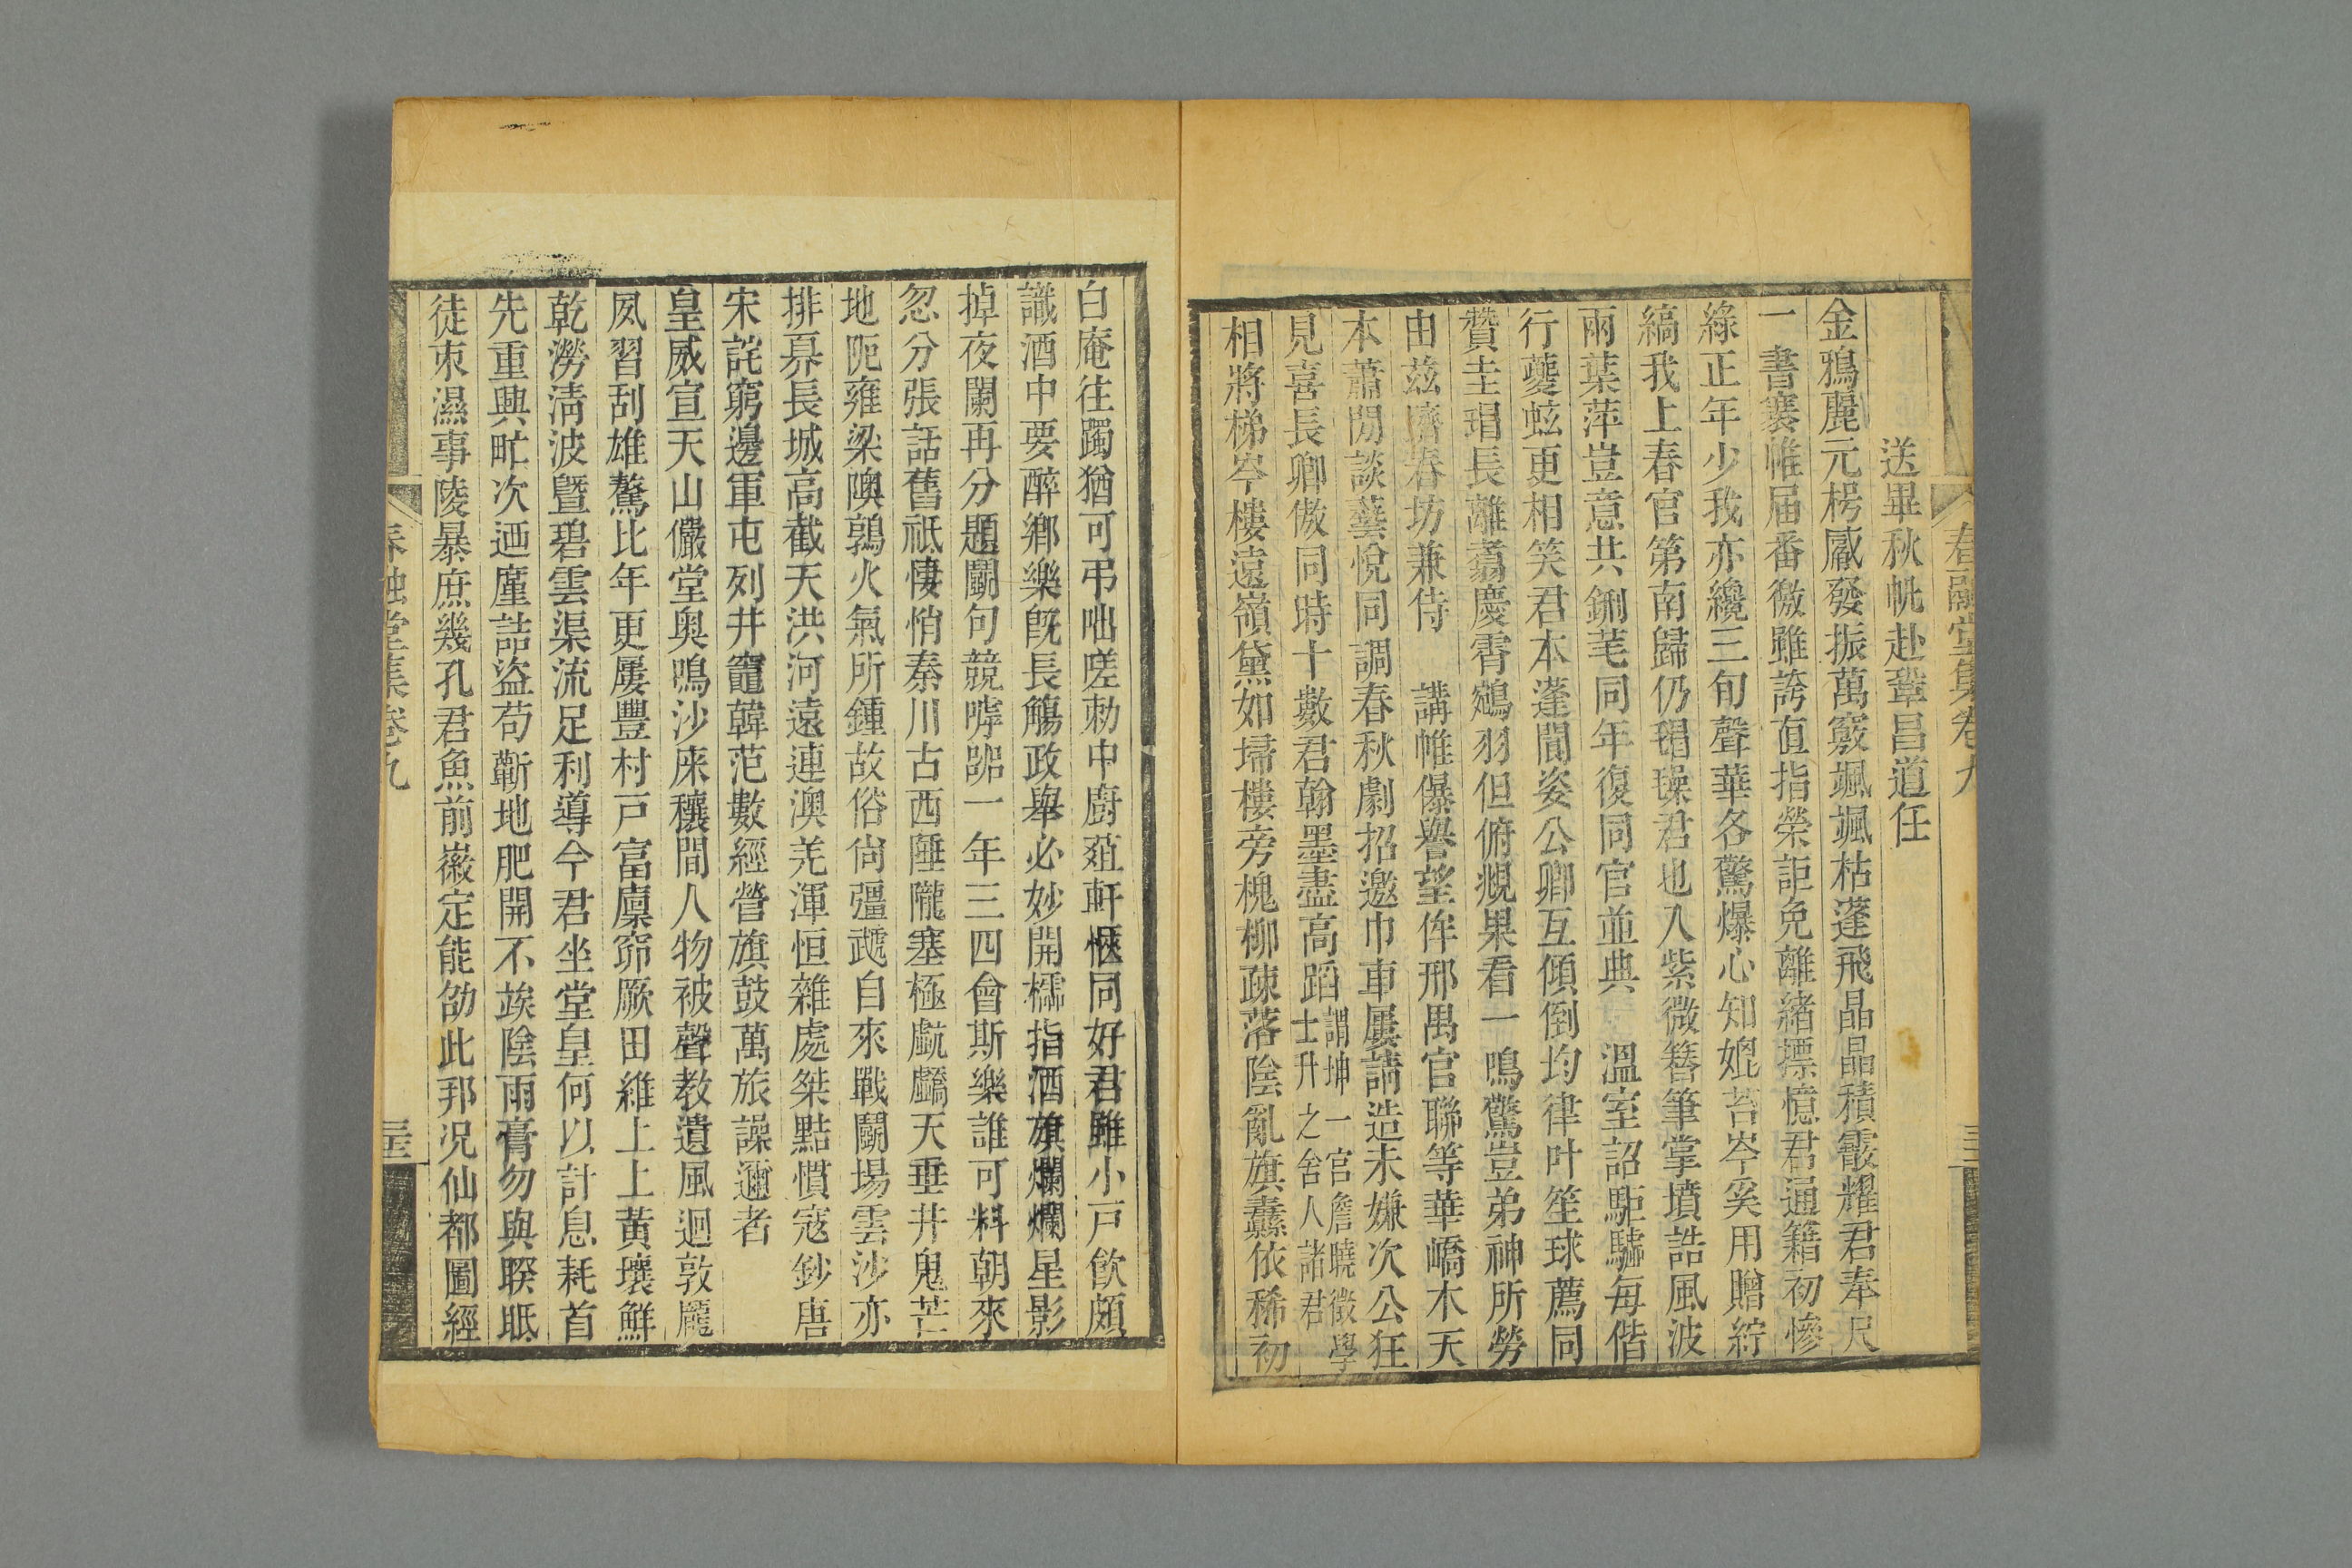 春融堂集卷九
送畢秋帆赴鞏昌道任
金鴉麗元枵觱發振萬竅颯颯枯蓬飛晶晶積霰耀君奉尺
一書褰帷届番徼雖誇直指榮詎免離緒摽憶君通籍初慘
綠正年少我亦纔三旬聲華各驚爆心知媿苔岑奚用贈紵
縞我上春官第南歸仍君也入紫微簪筆掌墳誥風波
兩葉萍豈意共鉶芼同年復同官並典 溫室詔駏驉每偕
行夔蚿更相笑君本蓬閬姿公卿互傾倒均律叶笙球薦同
贊圭瑁長離翥慶霄鵷羽但俯覜果看一鳴驚豈弟神所勞
由茲躋春坊兼侍 講帷儤譽望侔邢禺官聯等華嶠木天
本蕭閒談藝悅同調春秋劇招邀巾車屢請造未嫌次公狂
見喜長卿傲同時十數君翰墨盡高蹈謂坤一官詹曉徵學士升之舍人諸君
相將梯岑樓遠嶺黛如埽樓旁槐柳疎落陰亂旗纛依稀初
白庵往躅猶可弔咄嗟勅中廚葅軒愜同好君雖小戸飲頗
識酒中要醉鄉樂旣長觴政舉必妙開櫺指酒旗爛爛星影
掉夜闌再分題鬭句競呼噪一年三四會斯樂誰可料朝來
忽分張話舊祇悽悄秦川古西陲隴塞極巘天垂井鬼芒
地阨雍梁隩鶉火氣所鍾故俗尙彊虣自來戰鬭場雲沙亦
排奡長城高截天洪河遠連澳羌渾恒雜處桀黠慣寇鈔唐
宋詫窮邊軍屯列井竈韓范數經營旗鼓萬旅譟邇者
皇威宣天山儼堂奧鳴沙庥穰間人物被聲教遺風迴敦龎
夙習刮雄驁比年更屢豐村戸富廩窌厥田維上上黃壤鮮
乾澇淸波暨碧雲渠流足利導今君坐堂皇何以計息耗首
先重興甿次迺廑詰盜苟蘄地肥開不竢陰雨膏勿與睽眂
徒朿濕事陵暴庶幾孔君魚前徽定能劭此邦况仙都圖經
春融堂集卷九